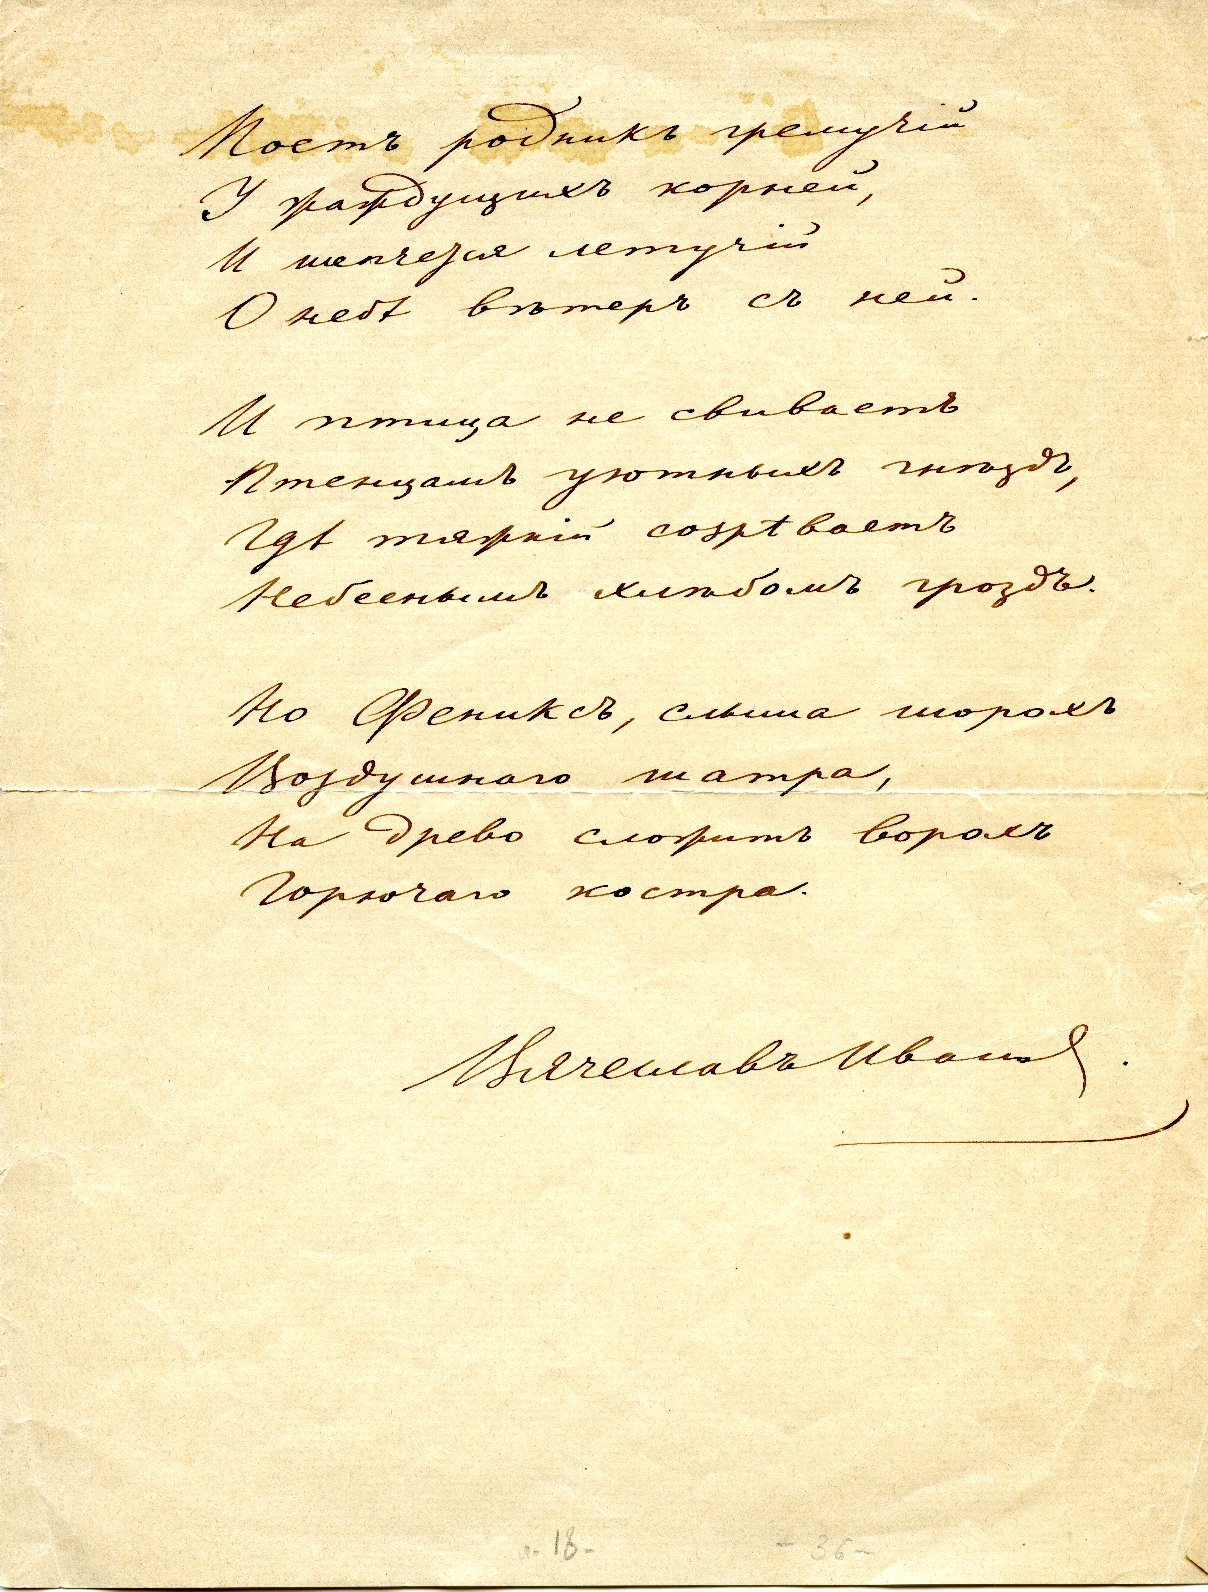 Поетъ родникъ гремучій
У жаждущихъ корней,
И шепчется летучій
О небѣ вѣтеръ съ ней.
И птица не свиваетъ
Птенцамъ уютныхъ гнѣздъ,
Гдѣ тяжкій созрѣваетъ
Небеснымъ хлѣбомъ гроздъ.
Но Фениксъ, слыша шорохъ
Воздушнаго шатра,
На древо сложитъ ворохъ
Горючаго костра.
Вячеславъ Ивановъ.
- 18 -
- 36 -